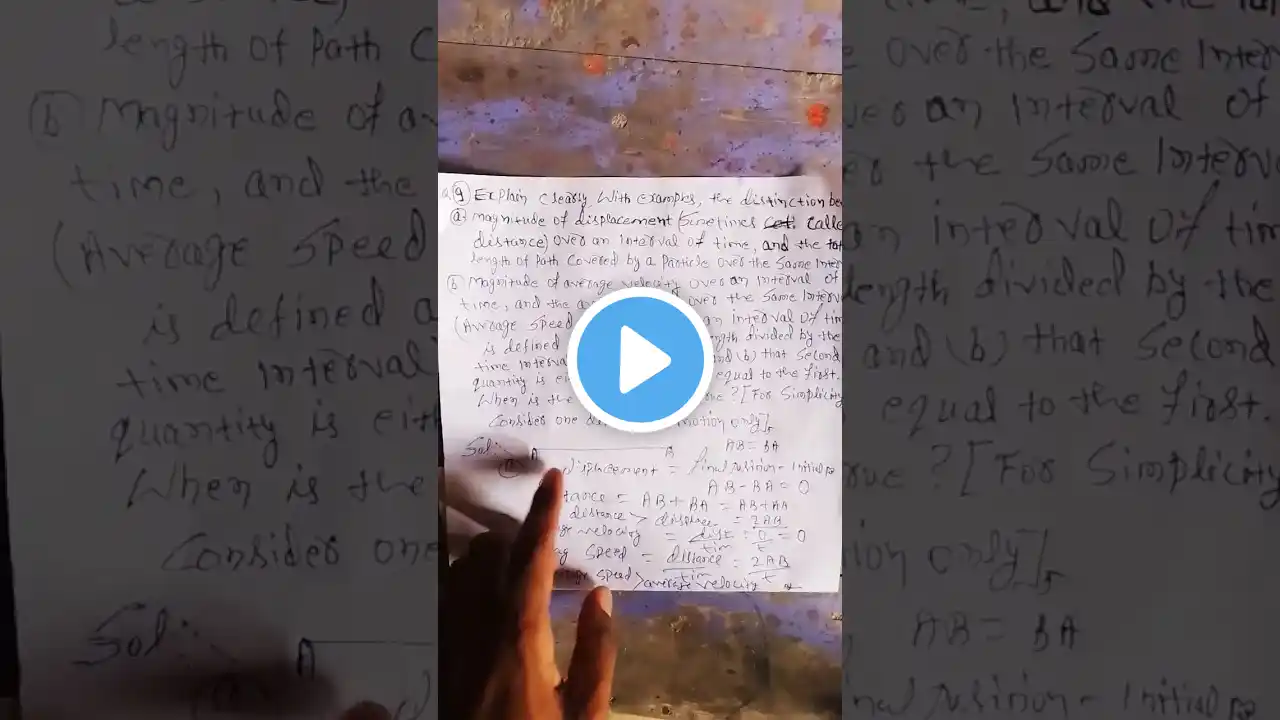 9 Explain clearly with examples, the distinction be
(a) magnitude of displacement (Simetimes called
distance) over an interval of time, and the tot
length of Path Covered by a Particle over the Same Inter
(b) Magnitude of average velocity over an interval of
time, and the over the Same Interv
(Average Speed an interval of tim
is defined ngth divided by the
time interval and (b) that Second
quantity is ei equal to the first.
When is the ue? [For Simplicity
Consider one motion only].
Sol: A B AB = BA
(a) displacement = final position - initial po
AB - BA = 0
tance = AB + BA = AB + AB
distance > displace = 2AB
velocity = dist/tim = 0/t = 0
Speed = distance/tim = 2AB/t
Speed > average velocity